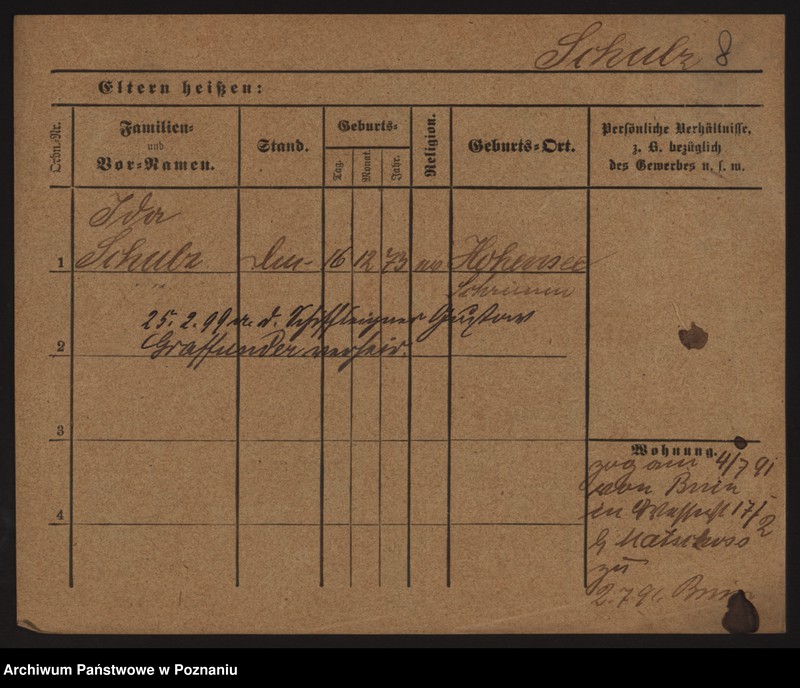 Schulz 8
Eltern heißen:
Ordn.-Nr.
Familien-
und
Vor-Namen.
Stand.
Geburts-
Tag.
Monat.
Jahr.
Religion.
Geburts-Ort.
Persönliche Verhältnisse,
z. B. bezüglich
des Gewerbes u. s. w.
Ida
1 Schulz 16 12 73 Hohensee
Schrimm
25. 2. 99 a. d. Schiffseigner Gustav
2 Graffunder verheir.
3
Wohnung.
zog am 4/7 91
von Bnin
4 in 17/
2
b Matschoss
zu
2.7 91. Bnin
Archiwum Państwowe w Poznaniu